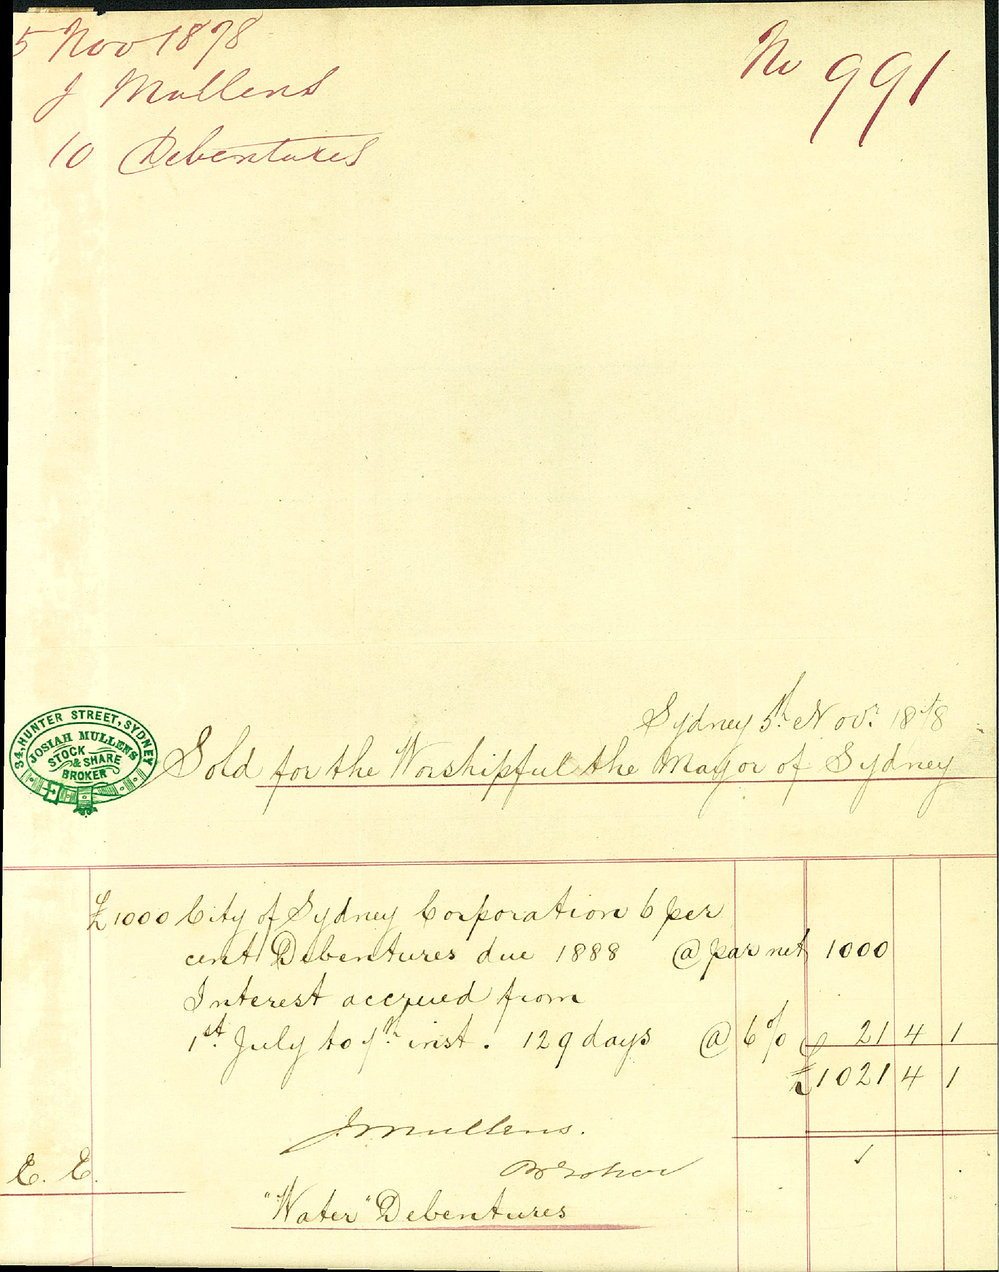 5 Nov 1878
J Mullens
10 Debentures
No 991
Sydney 5th Nov: 1878
34, HUNTER STREET, SYDNEY
JOSIAH MULLENS
STOCK
& SHARE
BROKER
Sold for the Worshipful the Mayor of Sydney
£1000 City of Sydney Corporation 6 per
cent Debentures due 1888 @ par net 1000
Interest accrued from
1st July to 7th inst. 129 days @ 6% £ 21 4 1
£1021 4 1
J Mullens.
Broker
E. E.
"Water" Debentures